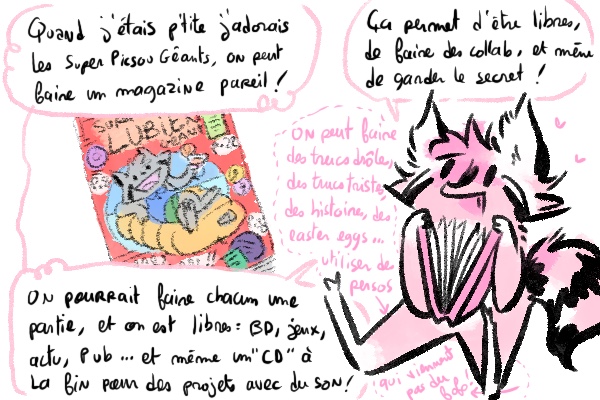 Quand j'étais p'tite j'adorais
les Super Picsou Géants, on peut
faire un magazine pareil !
Ça permet d'être libres,
de faire des collab, et même
de garder le secret !
SUPER
LUBIEN
GÉANT
On peut faire
des trucs drôles,
des trucs tristes,
des histoires, des
easter eggs...
utiliser de
persos
qui viennent
pas du
On pourrait faire chacun une
partie, et on est libres : BD, jeux,
actu, pub ... et même un "CD" à
la fin pour des projets avec du son !